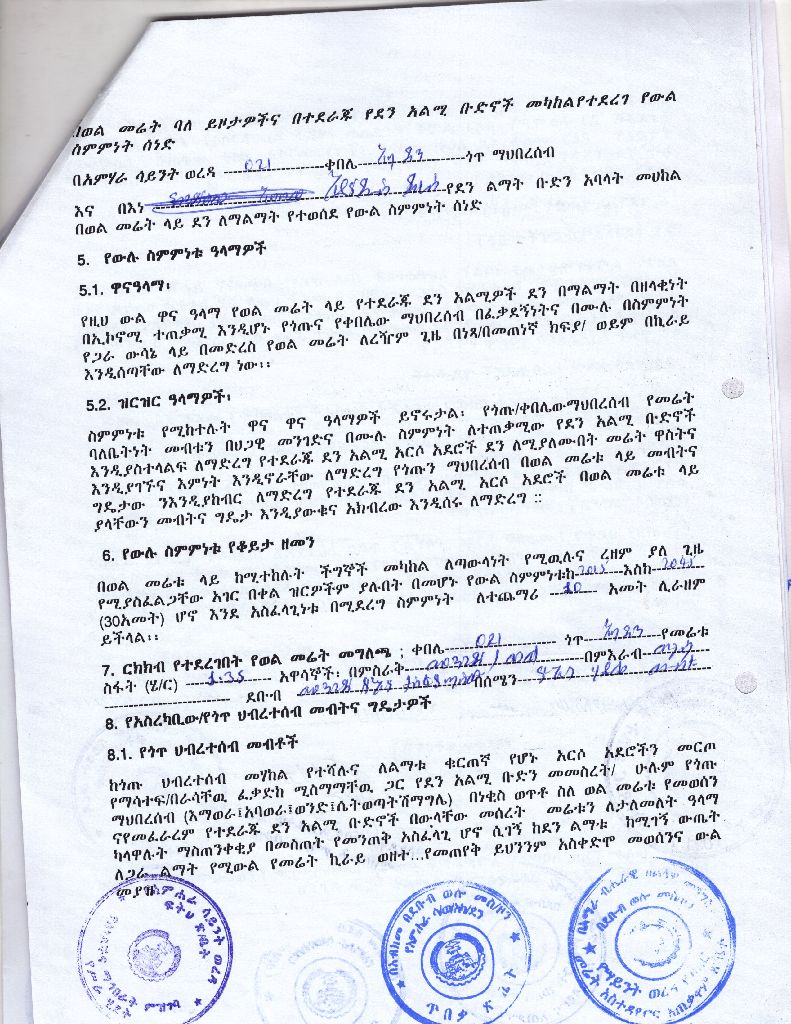 በወል መሬት ባለ ይዞታዎችና በተደራጁ የደን አልሚ ቡድኖች መካከልየተደረገ የውል
ስምምነት ሰነድ
በአምሃራ ሳይንት ወረዳ ---021---ቀበሌ------ጎጥ ማህበረሰብ
እና በእነ ---የደን ልማት ቡድን አባላት መሀከል
በወል መሬት ላይ ደን ለማልማት የተወሰደ የውል ስምምነት ሰነድ
5. የውሉ ስምምነቱ ዓላማዎች
5.1. ዋናዓላማ፡
የዚህ ውል ዋና ዓላማ የወል መሬት ላይ የተደራጁ ደን አልሚዎች ደን በማልማት በዘላቂነት
በኢኮኖሚ ተጠቃሚ እንዲሆኑ የጎጡና የቀበሌው ማህበረሰብ በፈቃደኝነትና በሙሉ በስምምነት
የጋራ ውሳኔ ላይ በመድረስ የወል መሬት ለረዥም ጊዜ በነጻ/በመጠነኛ ክፍያ/ ወይም በኪራይ
እንዲሰጣቸው ለማድረግ ነው፡፡
5.2. ዝርዝር ዓላማዎች፡
ስምምነቱ የሚከተሉት ዋና ዋና ዓላማዎች ይኖሩታል፡ የጎጡ/ቀበሌውማህበረሰብ የመሬት
ባለቤትነት መብቱን በህጋዊ መንገድና በሙሉ ስምምነት ለተጠቃሚው የደን አልሚ ቡድኖች
እንዲያስተላልፍ ለማድረግ የተደራጁ ደን አልሚ አርሶ አደሮች ደን ለሚያለሙበት መሬት ዋስትና
እንዲያገኙና እምነት እንዲኖራቸው ለማድረግ የጎጡን ማህበረሰብ በወል መሬቱ ላይ መብትና
ግዴታው ንእንዲያከብር ለማድረግ የተደራጁ ደን አልሚ አርሶ አደሮች በወል መሬቱ ላይ
ያላቸውን መብትና ግዴታ እንዲያውቁና አክብረው እንዲሰሩ ለማድረግ ::
6. የውሉ ስምምነቱ የቆይታ ዘመን
በወል መሬቱ ላይ ከሚተከሉት ችግኞች መካከል ለጣውላነት የሚዉሉና ረዘም ያለ ጊዜ
የሚያስፈልጋቸው አገር በቀል ዝርዎችም ያሉበት በመሆኑ የውል ስምምነቱከ-2015---እስከ-2045-
(30አመት) ሆኖ እንደ አስፈላጊነቱ በሚደረግ ስምምነት ለተጨማሪ ---10--- አመት ሊራዘም
ይችላል፡፡
7. ርክክብ የተደረገበት የወል መሬት መግለጫ ; ቀበሌ----021---- ጎጥ------የመሬቱ
ስፋት (ሄ/ር) ---1.35--- አዋሳኞች፡ በምስራቅ------በምእራብ------
------ ደቡብ ------በሰሜን------
8. የአስረካቢው/የጎጥ ህብረተሰብ መብትና ግዴታዎች
8.1. የጎጥ ህብረተሰብ መብቶች
ከጎጡ ህብረተሰብ መሃከል የተሻሉና ለልማቱ ቁርጠኛ የሆኑ አርሶ አደሮችን መርጦ
የማሳተፍ/በራሳቸዉ ፈቃድከ ሚስማማቸዉ ጋር የደን አልሚ ቡድን መመስረት/ ሁሉም የጎጡ
ማህበረሰብ (እማወራ፤አባወራ፤ወንድ፤ሴትወጣትሽማግሌ) በነቂስ ወጥቶ ስለ ወል መሬቱ የመወሰን
ናየመፈራረም የተደራጁ ደን አልሚ ቡድኖች በውላቸው መሰረት መሬቱን ለታለመለት ዓላማ
ካላዋሉት ማስጠንቀቂያ በመስጠት የመንጠቅ አስፈላጊ ሆኖ ሲገኝ ከደን ልማቱ ከሚገኝ ውጤት
ለጋራ ልማት የሚውል የመሬት ኪራይ ወዘተ...የመጠየቅ ይህንንም አስቀድሞ መወሰንና ውል